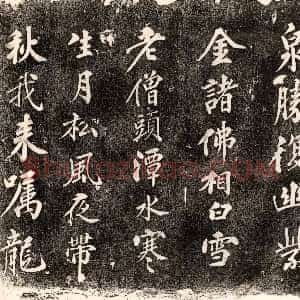 泉勝概幽紫
金諸佛相白雪
老僧頭潭水寒
生月松風夜帶
秋我來囑龍